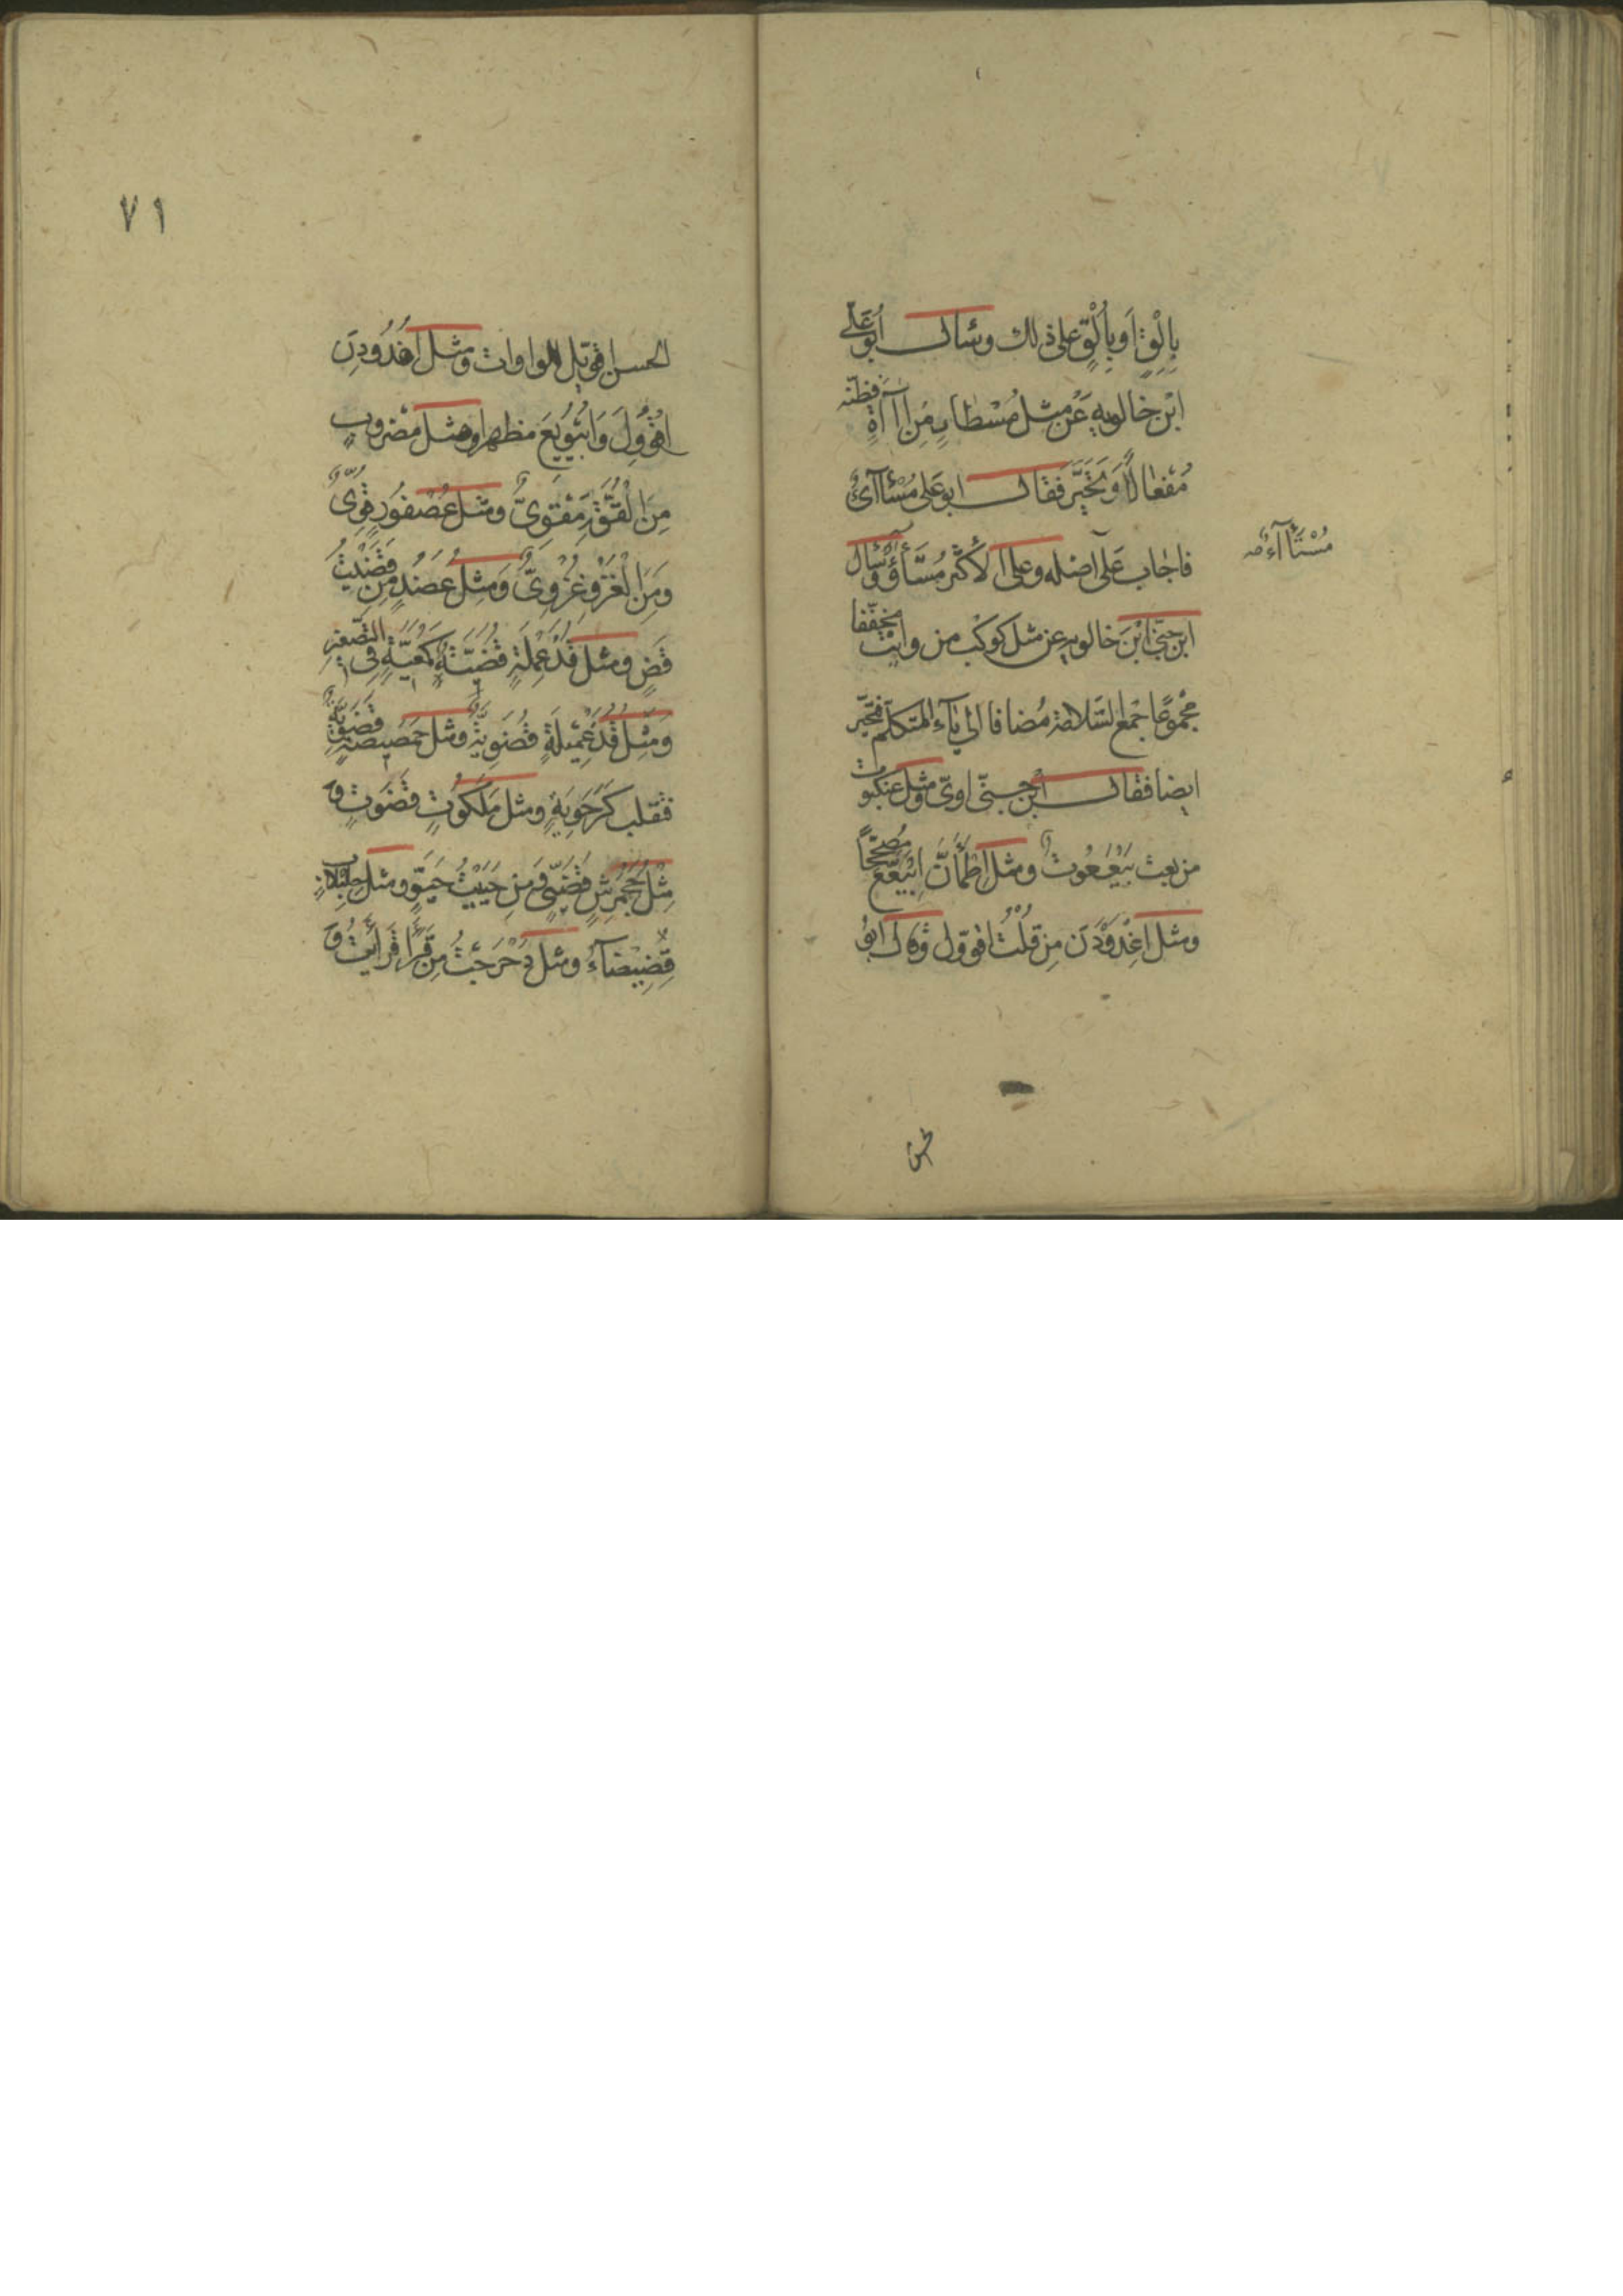 بِالْقٍ اَوبِاَلْقٍ على ذلك وسٔال ابُو عَلّى
ابْن خالويهِ عَنْ مثل مُسْطٰارٍ مِن اٰاۤءَةٍ فظنّه
مُفْعٰالاً وَتَحَيَّرَ فقال ابو عَلى مُسْأاۤءٌ
فاجٰابَ عَلٰى اصْله وعلى الاكثر مُسْتَأءٌ وسٔال
مُسْتَأاۤءٌ صه
ابن جنّى ابْنَ خالويه عن مثل كوكبٍ من وايت مخفّفا
مجْموعًا جمْع السّلامة مُضافا الى يٰاۤء المتكلّم فتحيّر
ايضا فقال ابن جنّى اوىّ ومثل عنكبوت
من بعت بَيْعَعُوت ومثل اطْمأَنَّ اِبْيَعَّعَ مُصحّحًا
ومثل اغْدَوْدَن مِن قُلْتُ اقووّل وقال ابُو
طس
٧١
الحسن اقويّل للواوات ومثل اغْدُودِنَ
اقْوُوِّلَ وَابْيُويِعَ مظهرا ومثل مَضروبٍ
مِنَ الْقُوَّةِ مَقْوِىٌّ ومثل عُصْفوُرٍ قُوِّىٌّ
وَمِنَ الْغَزْو غُزْوِىٌّ وَمِثْل عَضُدٍ مِن قَضَيْتُ
قَضٍ ومثل قُذَعْمِلَةٍ قُضَيَّةٌ كمُعَيَّةٍ فى التّصْغير
وَمِثْل قُذَعْمِيلَةٍ قُضَوِيّةٌ ومثل حَمَصِيصَةٍ قَضَوِيَّةٌ
فتقلب كَرَحَوِيَةٍ ومثل مَلَكُوتٍ قَضَوُتٍ و
مِثْل جَحْمَرِشٍ قَضْيَىٍ وَمِن حَيَيْتُ حَيَّوٍ ومثل حِلِبْلابٍ
قِضِيضَاۤءٌ ومثل دَحْرَجْتُ مِن قَرَأَ قَرْأَيْتُ و